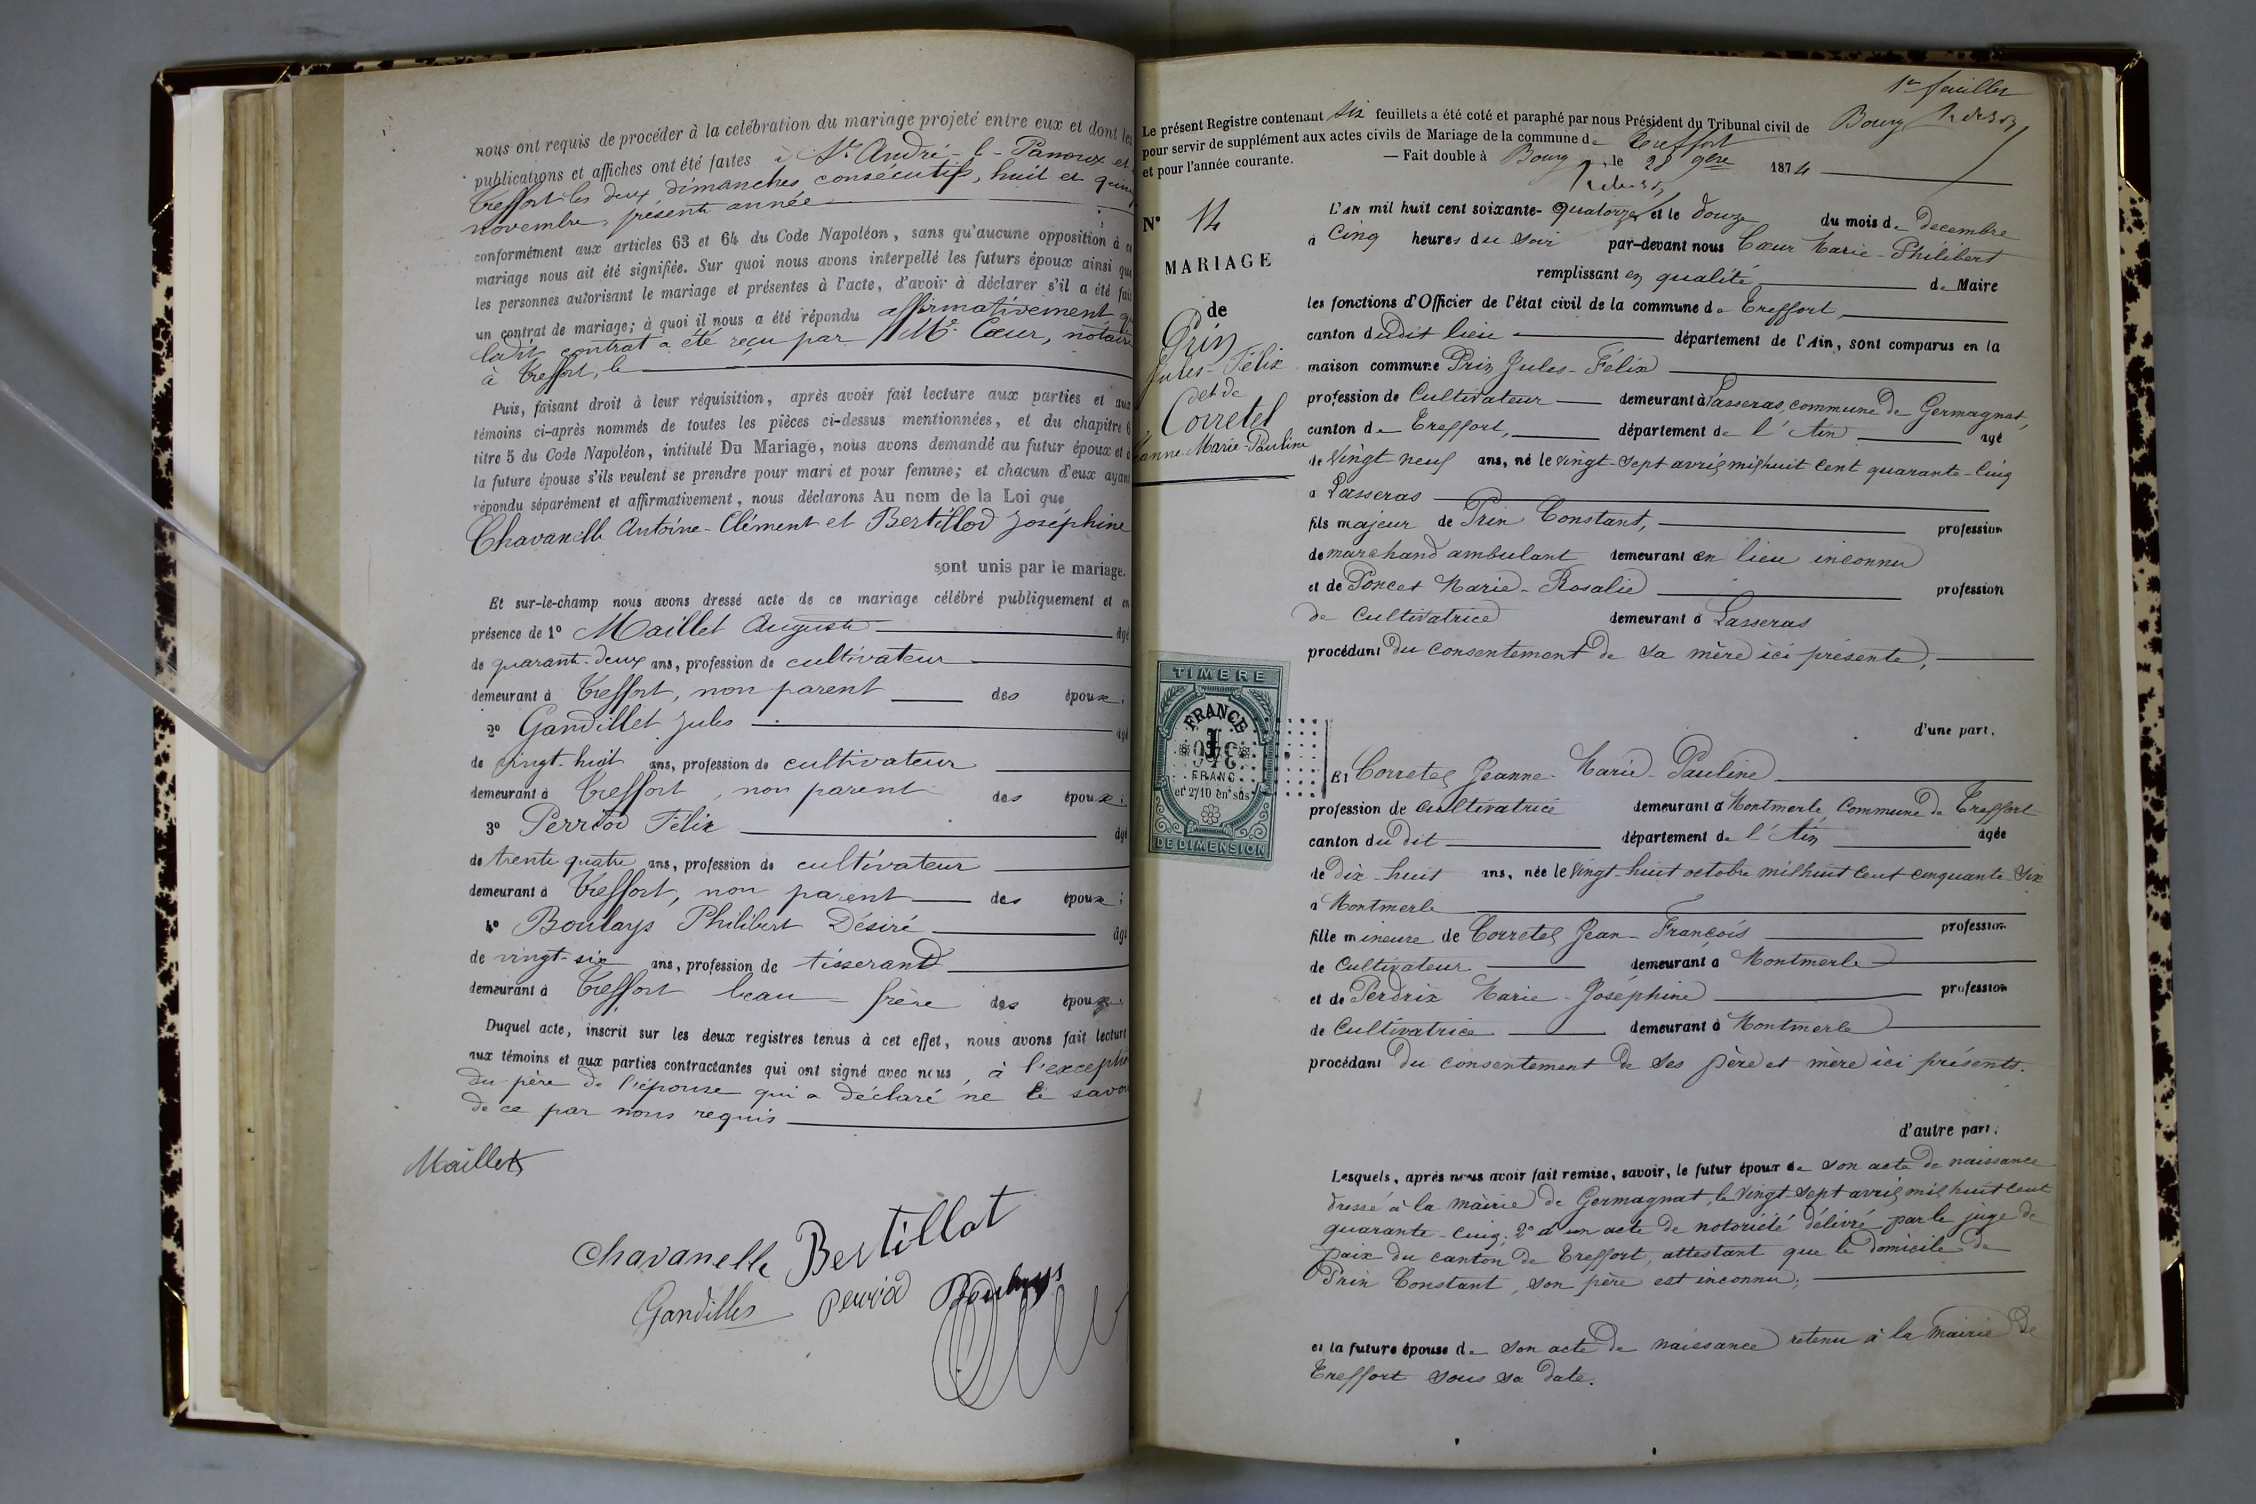 nous ont requis de procéder à la celébration du mariage projeté entre eux et dont les
publications et affiches ont été faites à St André-l-Panoux et
Treffort les deux dimanches consécutifs, huit et
novembre, présente année
conformément aux articles 63 et 64 du Code Napoléon, sans qu'aucune opposition à ce
mariage nous ait été signifiée. Sur quoi nous avons interpellé les futurs époux ainsi que
les personnes autorisant le mariage et présentes à l'acte, d'avoir à déclarer s'il a été fait
un contrat de mariage; à quoi il nous a été répondu affirmativement
ledit contrat a été reçu par Me. Cœur, notaire
à Treffort, le
Puis, faisant droit à leur réquisition, après avoir fait lecture aux parties et aux
témoins ci-après nommés de toutes les pièces ci-dessus mentionnées, et du chapitre 6
titre 5 du Code Napoléon, intitulé Du Mariage, nous avons demandé au futur époux et à
la future épouse s'ils veulent se prendre pour mari et pour femme; et chacun d'eux ayant
répondu séparément et affirmativement, nous déclarons Au nom de la Loi que
Chavanelle Antoine-Clément et Bertillod Joséphine
sont unis par le mariage.
Et sur-le-champ nous avons dressé acte de ce mariage célébré publiquement et en
présence de 1° Maillet Auguste âgé
de quarante-deux ans, profession de cultivateur
demeurant à Treffort, non parent des époux;
2° Gandillet Jules âgé
de vingt-huit ans, profession de cultivateur
demeurant à Treffort, non parent des époux;
3° Perrod Félix âgé
de trente quatre ans, profession de cultivateur
demeurant à Treffort, non parent des époux;
4° Boulays Philibert Désiré âgé
de vingt-six ans, profession de tisserand
demeurant à Treffort beau-frère des époux.
Duquel acte, inscrit sur les deux registres tenus à cet effet, nous avons fait lecture
aux témoins et aux parties contractantes qui ont signé avec nous, à l'
du père de l'épouse qui a déclaré ne le
de ce par nous requis
Maillet
Chavanelle Bertillot
Gandillet Perrod Boulays
1er feuillet
Le présent Registre contenant six feuillets a été coté et paraphé par nous Président du Tribunal civil de Bourg
pour servir de supplément aux actes civils de Mariage de la commune de Treffort
et pour l'année courante. — Fait double à Bourg, le 28 9bre 1874
N° 14
MARIAGE
de
Prin
Jules-Félix
et de
Corretel
Jeanne-Marie-Pauline
L'AN mil huit cent soixante-quatorze et le douze du mois de decembre
à Cinq heures du soir par-devant nous Cœur Marie-Philibert
remplissant en qualité de Maire
les fonctions d'Officier de l'état civil de la commune de Treffort,
canton dudit lieu département de l'Ain, sont comparus en la
maison commune Prin Jules-Félix
profession de Cultivateur demeurant à Lasseras, commune de Germagnat,
canton de Treffort, département de l'Ain agé
de Vingt neuf ans, né le vingt-sept avril mil huit cent quarante-cinq
à Lasseras
fils majeur de Prin Constant, profession
de marchand ambulant demeurant en lieu inconnu
et de Poncet Marie-Rosalie profession
de Cultivatrice demeurant à Lasseras
procédant du consentement de sa mère ici présente,
d'une part.
TIMBRE
FRANCE
1
FRANC
et 2/10 en sus
DE DIMENSION
Et Corretel Jeanne-Marie-Pauline
profession de Cultivatrice demeurant à Montmerle, Commune de Treffort
canton du dit département de l'Ain agée
de Dix-huit ans, née le Vingt-huit octobre mil huit cent cinquante-six
à Montmerle
fille mineure de Corretel Jean-François profession
de Cultivateur demeurant à Montmerle
et de Perdrix Marie-Joséphine profession
de Cultivatrice demeurant à Montmerle
procédant du consentement de ses père et mère ici présents.
d'autre part.
Lesquels, après nous avoir fait remise, savoir, le futur époux de son acte de naissance
dressé à la mairie de Germagnat, le vingt-sept avril mil huit cent
quarante-cinq; 2° d'un acte de notoriété délivré par le juge de
paix du canton de Treffort, attestant que le domicile de
Prin Constant, son père est inconnu;
et la future épouse de son acte de naissance retenu à la mairie de
Treffort sous sa date.